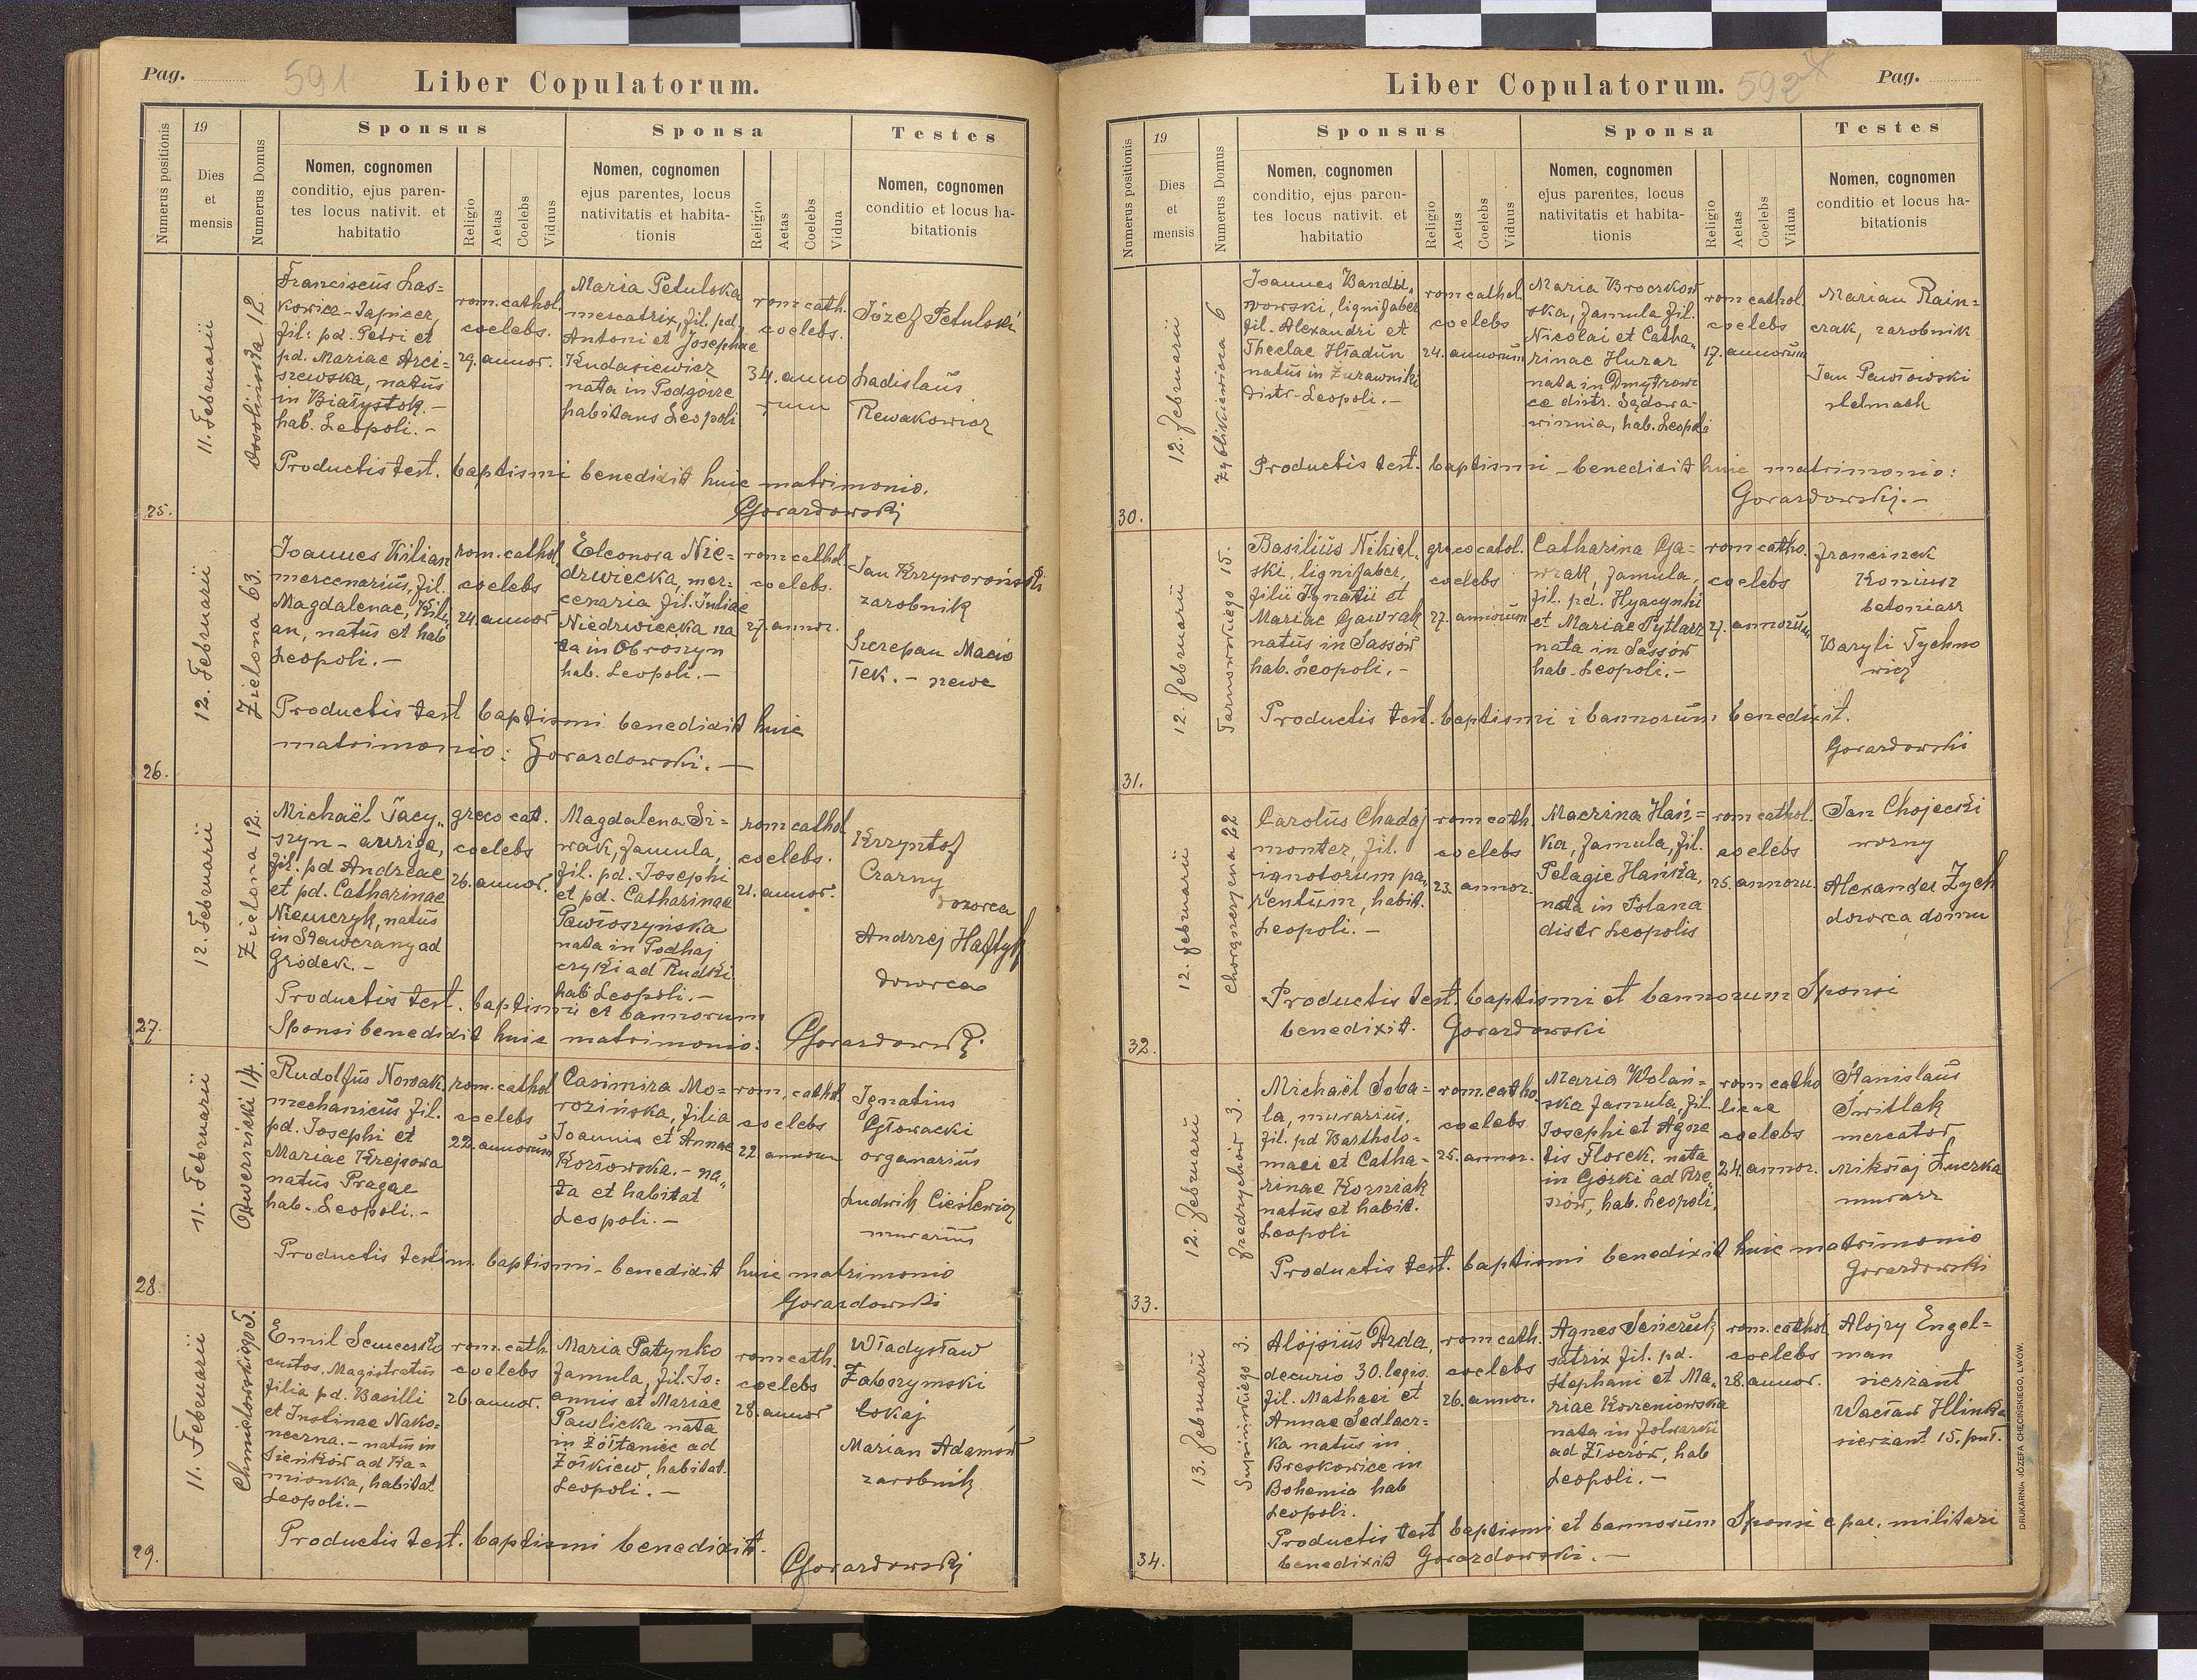 Pag. 591 Liber Copulatorum.
Numerus positionis
19 Dies et mensis
Numerus Domus
Sponsus
Nomen, cognomen
conditio, ejus paren-
tes locus nativit. et
habitatio
Religio
Aetas
Coelebs
Viduus
Sponsa
Nomen, cognomen
ejus parentes, locus
nativitatis et habita-
tionis
Religio
Aetas
Coelebs
Vidua
Testes
Nomen, cognomen
conditio et locus ha-
bitationis
25.
11. Februarii
Ossolińska 12.
Franciscus Las=
kowicz - Tapicer,
fil: pd. Petri et
pd. Mariae Arci=
szewska, natus
in Białystok. -
hab. Leopoli. -
rom. cathol.
coelebs.
29. annor.
Maria Petulska
mercatrix, fil. pd.
Antoni et Josephae
Kudasiewicz
nata in Podgórze
habitans Leopoli
rom cath.
coelebs.
34. anno
rum
Józef Petulski
Ladislaus
Rewakowicz
Productis test. baptismi benedixit huic matrimonio.
Gorazdowski
26.
12. Februarii
Zielona 63.
Joannes Kilian
mercenarius, fil.
Magdalenae, Kili,
an, natus et hab
Leopoli. -
rom. cathol
coelebs
24. annor
Eleonora Nie=
dzwiecka, mer=
cenaria fil. Juliae
Niedzwiecka na
ta in Obroszyn
hab. Leopoli. -
rom cathol
coelebs.
27. annor.
Jan Krzyworoński
zarobnik
Szczepan Macio
Tek. - szewc
Productis test baptismi benedixit huic
matrimonio: Gorazdowski. -
27.
12. Februarii
Zielona 12.
Michaël Tacy„
szyn - auriga,
fil. pd Andreae
et pd. Catharinae
Niemczyk, natus
in Stawczany ad
Gródek. -
greco cat.
coelebs
26. annor.
Magdalena Si=
wak, famula,
fil. pd. Josephi
et pd. Catharinae
Pawłoszyńska
nata in Podhaj
czyki ad Rudki
hab Leopoli. -
rom cathol
coelebs.
21. annor.
Krzysztof
Czarny
dozorca
Andrzej Haftyk
dozorca
Productis test. baptismi et bannorum
Sponsi benedixit huic matrimonio: Gorazdowski
28.
11. Februarii
Dwernicki 14.
Rudolfus Nowak
mechanicus fil.
pd. Josephi et
Mariae Krejsova
natus Pragae
hab. Leopoli. -
rom. cathol
coelebs
22. annorum
Casimira Mo=
rozińska, filia
Joannis et Annae
Korsowska. - na„
ta et habitat
Leopoli. -
rom. cathol.
coelebs
22. annorum
Ignatius
Głowacki
organarius
Ludwik Cieślewicz
murarius
Productis testim. baptismi - benedixit huic matrimonio
Gorazdowski
29.
11. Februarii
Chmielowskiego 5.
Emil
custos. Magistratus
filia pd. Basilli
et Justinae Nako=
neczna. - natus in
Sieńków ad Ka=
mionka, habitat
Leopoli. -
rom. cath.
coelebs
26. annor.
Maria Patynko
famula, fil. Jo=
annis et Mariae
Pawlicka nata
in Żółtaniec ad
Żółkiew, habitat.
Leopoli. -
rom cath.
coelebs
28. annor
Władysław
Zaborzymski
lokaj
Marian Adamow
zarobnik
Productis test. baptismi benedixit.
Gorazdowski
Liber Copulatorum. 592 Pag.
Numerus positionis
19 Dies et mensis
Numerus Domus
Sponsus
Nomen, cognomen
conditio, ejus paren-
tes locus nativit. et
habitatio
Religio
Aetas
Coelebs
Viduus
Sponsa
Nomen, cognomen
ejus parentes, locus
nativitatis et habita-
tionis
Religio
Aetas
Coelebs
Vidua
Testes
Nomen, cognomen
conditio et locus ha-
bitationis
30.
12. Februarii
Zyblikiewicza 6
Joannes Bandu„
rowski, lignifaber
fil. Alexandri et
Theclae Hładun
natus in Żurawniki
distr. Leopoli. -
rom cathol.
coelebs
24. annorum
Maria Broczkow
ska, famula fil.
Nicolai et Catha„
rinae Huzar
nata in Dmytrowi
ce distr. Sądowa-
wisznia, hab. Leopoli
rom cathol.
coelebs
17. annorum
Marian Rain=
czak, zarobnik
Jan Pawłowski
stelmach
Productis test. baptismi - benedixit huic matrimonio:
Gorazdowski. -
31.
12. Februarii
Tarnowskiego 15.
Basilius Nikiel„
ski, lignifaber,
filii Ignatii et
Mariae Gawrak
natus in Sassów
hab. Leopoli. -
greco catol.
coelebs
27. annorum
Catharina Ga=
wrak, famula,
fil. pd. Hyacynthi
et Mariae Pytlarz
nata in Sassów
hab. Leopoli. -
rom catho.
coelebs
27. annorum
Franciszek
Koniusz
betoniarz
Bazyli Tychno
wicz
Productis test. baptismi i bannorum, benedixit.
Gorazdowski
32.
12. Februarii
Chorąszczyzna 22
Carolus Chadaj
monter, fil.
ignotorum pa„
rentum, habit.
Leopoli. -
rom cath.
coelebs
23. annor.
Macrina Hań=
ka, famula, fil.
Pelagie Hańka,
nata in Polana
distr Leopolis
rom cathol.
coelebs
25. annoru.
Jan Chojecki
woźny
Alexander Zych
dozorca domu
Productis test. baptismi et bannorum Sponsi
benedixit. Gorazdowski
33.
12. Februarii
Fredrychów 3.
Michaël Soba=
la, murarius,
fil. pd Bartholo=
maei et Catha=
rinae Korniak
natus et habit.
Leopoli
rom. catho.
coelebs
25. annor.
Maria Wolań=
ska famula, fil.
Josephi et Agne
tis Florek, nata
in Górki ad Rze„
szów, hab. Leopoli.
rom catho
licae
coelebs
24. annor.
Stanislaus
Świtlak
mercator
Mikołaj Łuczka
murarz
Productis test. baptismi benedixit huic matrimonio
Gorazdowski
34.
13. Februarii
Supińskiego 3.
Alojsius Drda,
decurio 30. legis.
fil. Mathaei et
Annae Sedlacz=
ka natus in
Breskowice in
Bohemia hab
Leopoli.
rom cath.
coelebs
26. annor.
Agnes Senczuk
satrix fil. pd.
Stephani et Ma„
riae Korzeniowska
nata in Folwarki
ad Złoczów, hab
Leopoli. -
rom. cathol
coelebs
28. annor.
Alojzy Engel=
man
sierżant
Wacław Hlinka
sierżant 15. puł.
Productis test baptismi et bannorum Sponsi e par. militari
benedixit Gorazdowski. -
DRUKARNIA JÓZEFA CHĘCIŃSKIEGO, LWÓW.